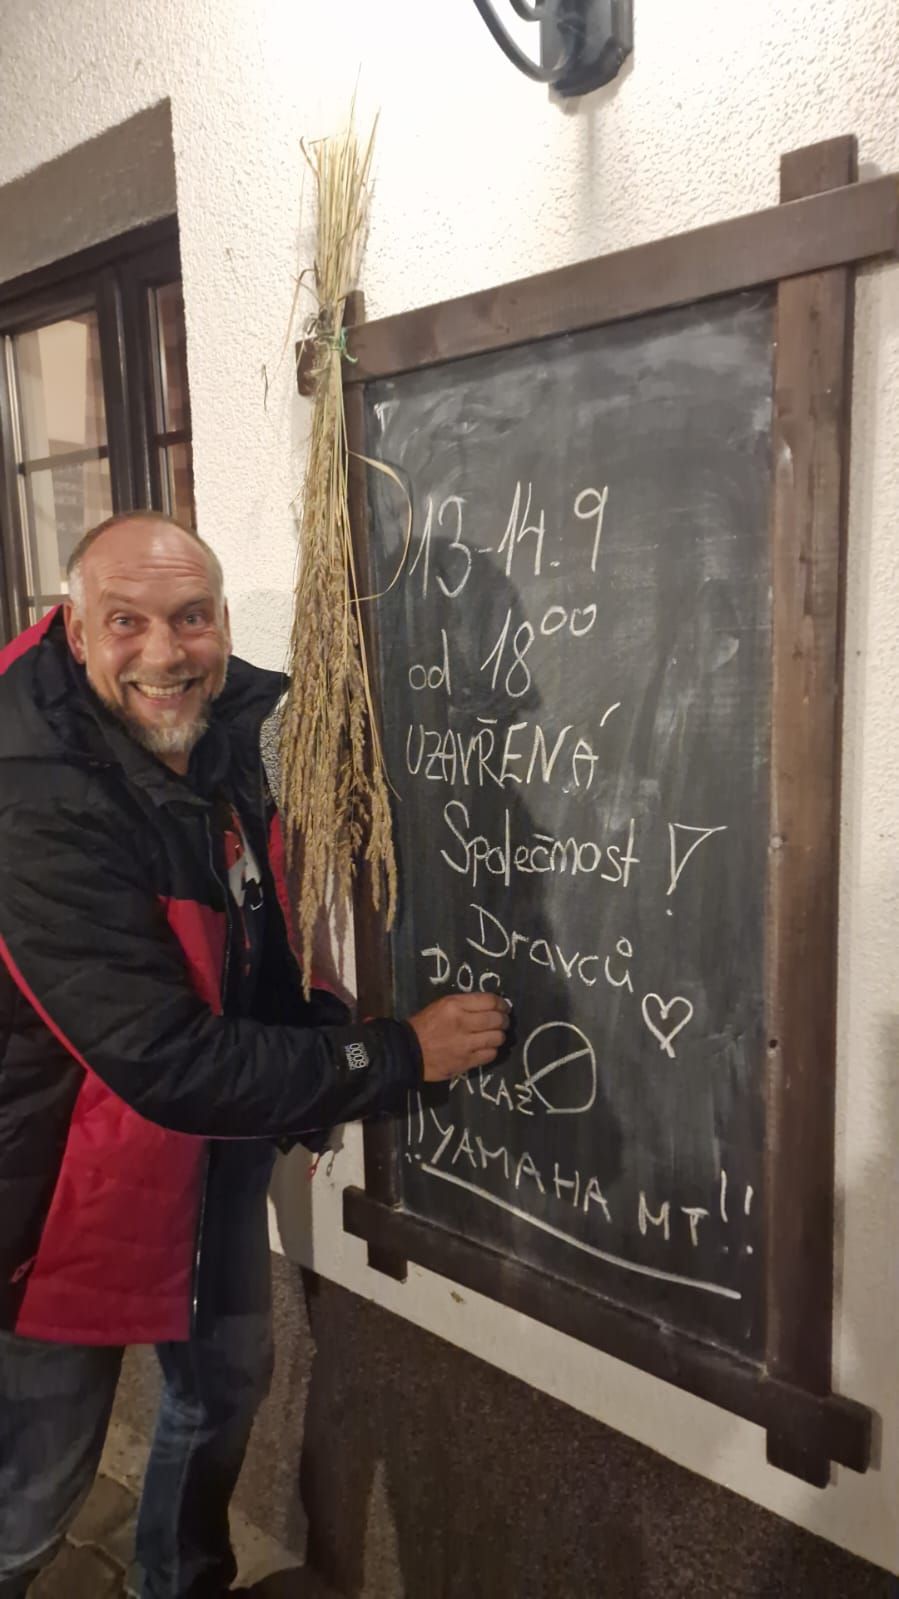 13-14.9
od 18⁰⁰
UZAVŘENÁ
Společnost !
Dravců
DOC
ÁKAZ
!! YAMAHA MT !!
0009